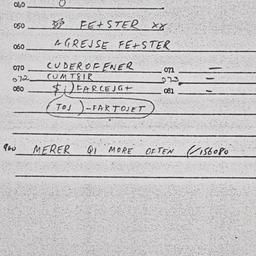 040
050 FE+STER xx
060 AGREJSE FE+STER
070 CUDEROFENER 071 —
072 CUMTEIR 073 —
080 EARLEJG+ 081 —
(TOJ)-FARTOJET
900 MERER QI MORE OFTEN (/156080